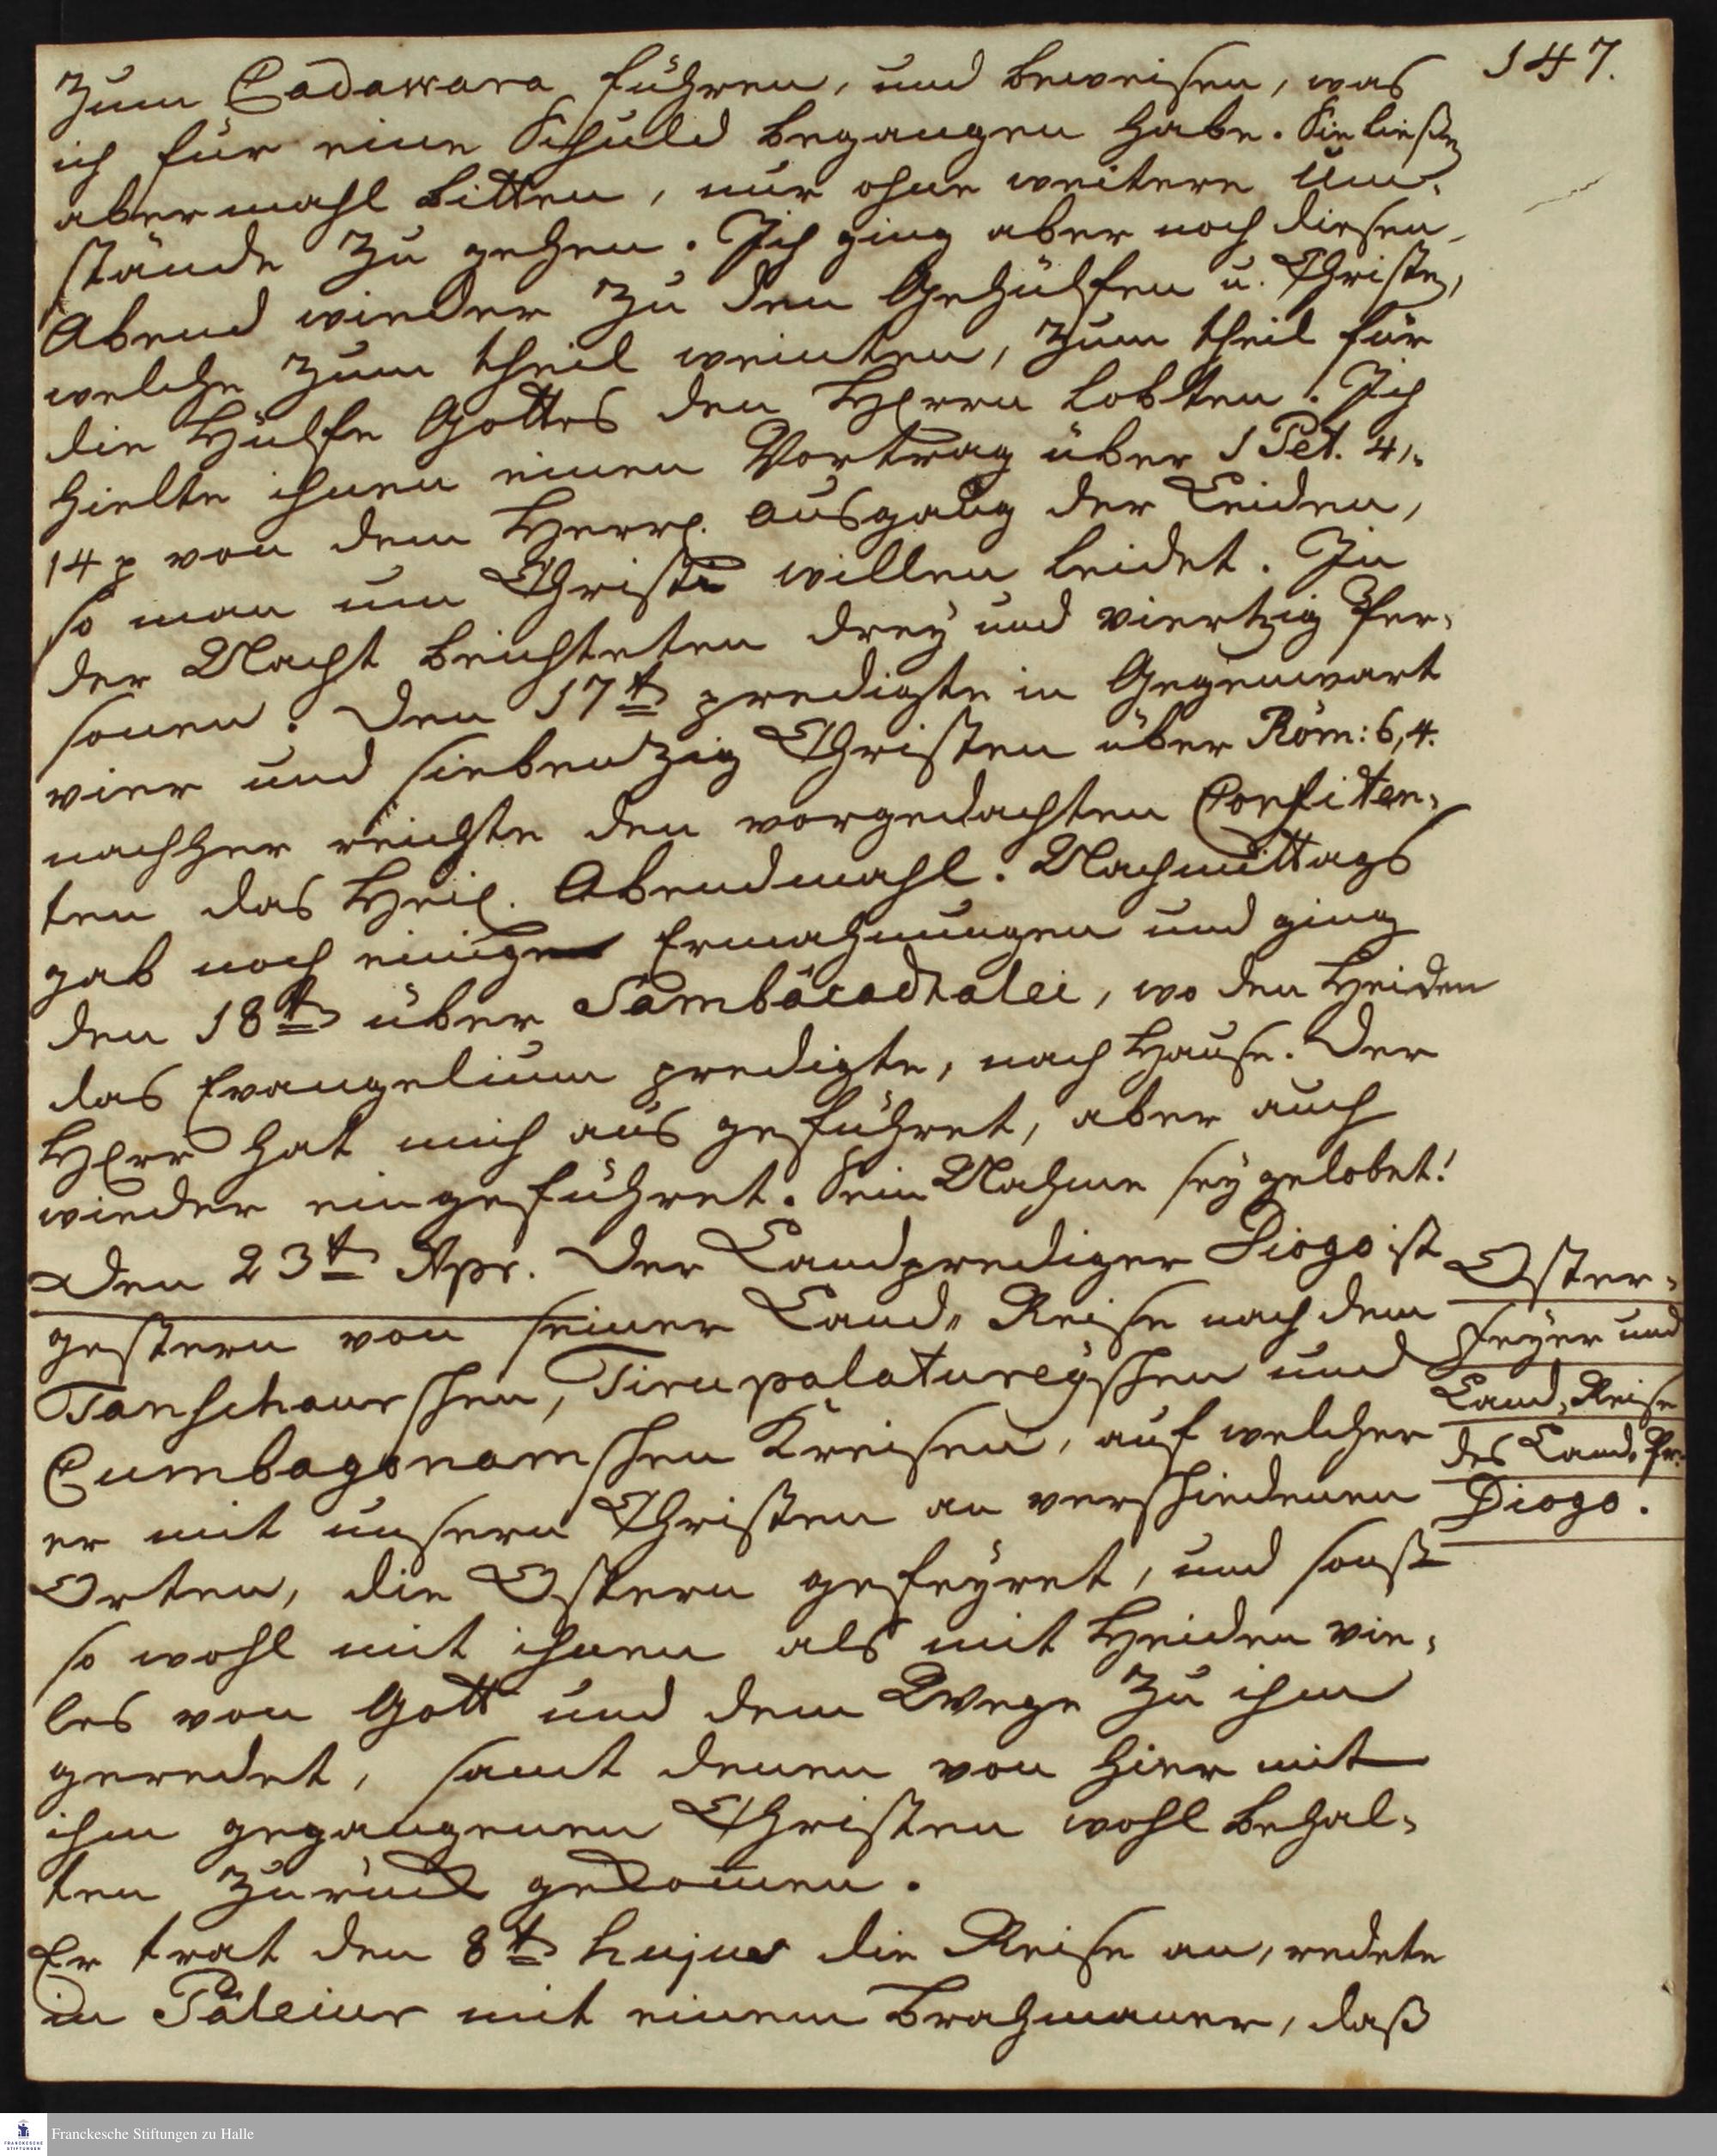 147.
zum Cadawara führen, und beweisen, was
ich für eine Schuld begangen habe. Sie ließen
abermahl bitten, nur ohne weitere Um¬
stände zu gehen. Ich ging aber noch diesen
Abend wieder zu den Gehülfen u. Christen,
welche zum theil weinten, zum theil für
die Hülfe Gottes den HErrn lobten. Ich
hielte ihnen einen Vortrag über 1 Pet. 4,
14 p von dem Herrl. Ausgang der Leiden,
so man um Christi willen leidet. In
der Nacht beichteten drey und viertzig Per¬
sonen. Den 17ten predigte in Gegenwart
vier und siebentzig Christen über Röm: 6, 4.
nachher reichte den vorgedachten Confiten¬
ten das Heil. Abendmahl. Nachmittags
gab noch einige Ermahnungen und ging
den 18ten über Sambácadhalei, wo den Heiden
das Evangelium predigte, nach Hause. Der
HErr hat mich aus geführet, aber auch
wieder eingeführet. Sein Nahme sey gelobet!
Den 23ten Apr. Der Landprediger Diogo ist
gestern von seiner Land-Reise nach dem
Tanschaurschen, Tirupalatureyschen und
Cumbagonamschen Kreisen, auf welcher
er mit unsern Christen an verschiedenen
Orten, die Ostern gefeyret, und sonst
so wohl mit ihnen als mit Heiden vie¬
les von Gott und dem Wege zu ihm
geredet, samt denen von hier mit
ihm gegangenen Christen wohl behal¬
ten zurück gekommen.
Er trat den 8ten hujus die Reise an, redete
in Páleiur mit einem Brahmaner, daß
Oster¬
Feyer und
Land-Reise
des Land-Pr.
Diogo.
Franckesche Stiftungen zu Halle
FRANCKESCHE
STIFTUNGEN